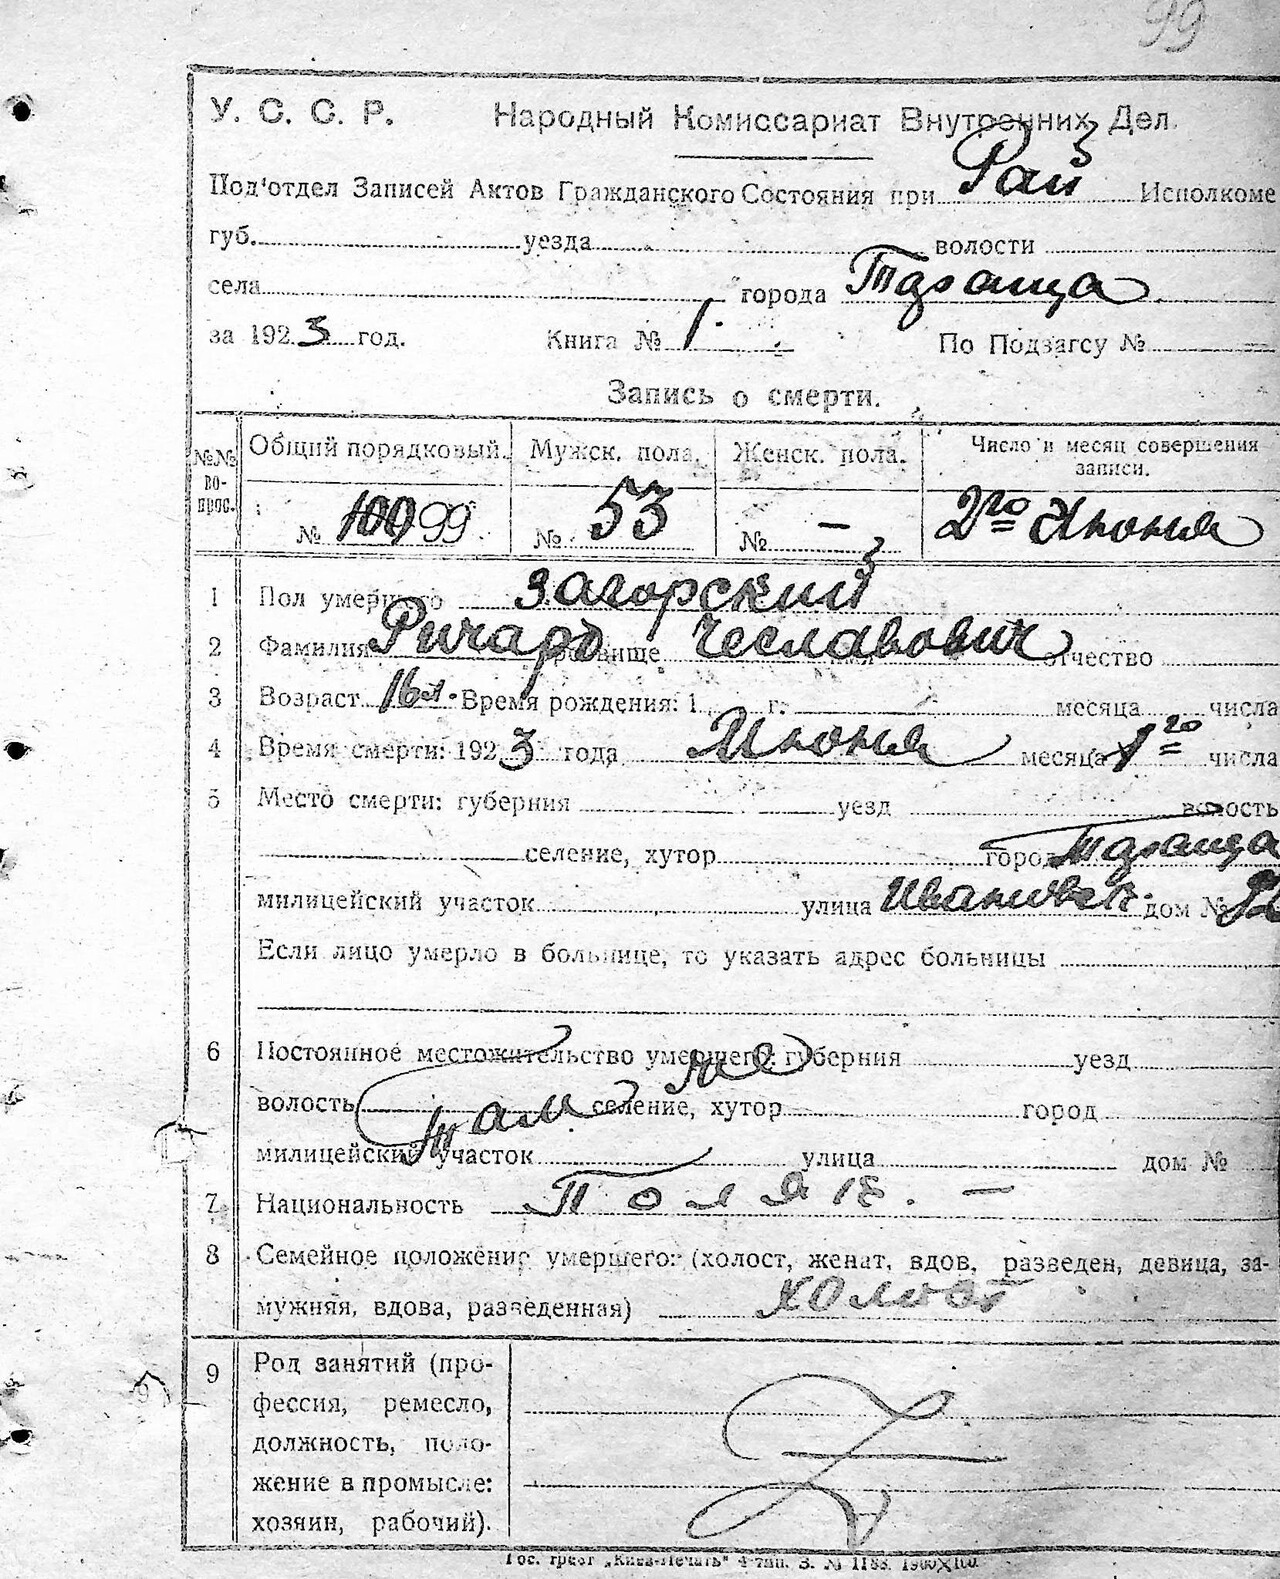 99
У. С. С. Р. Народный Комиссариат Внутренних Дел.
Под'отдел Записей Актов Гражданского Состояния при Рай Исполкоме
губ. уезда волости
села города Таращa
за 1923 год. Книга № 1. По Подзагсу №
Запись о смерти.
№№ во-прос. Общий порядковый. Мужск. пола. Женск. пола. Число и месяц совершения записи.
№ 100 99 № 53 № – 2го Июня
1 Пол умершего Загорский
2 Фамилия Ричард прозвище Чеславович отчество
3 Возраст 16 л. Время рождения: 1 г. месяца числа
4 Время смерти: 1923 года Июня месяца 1го числа
5 Место смерти: губерния уезд волость
селение, хутор город Тараща
милицейский участок улица дом №
Если лицо умерло в больнице, то указать адрес больницы
6 Постоянное местожительство умершего: губерния уезд
волость там же селение, хутор город
милицейский участок улица дом №
7 Национальность Поляк. –
8 Семейное положение умершего: (холост, женат, вдов, разведен, девица, за-
мужняя, вдова, разведенная) холост
9 Род занятий (про-
фессия, ремесло,
должность, поло-
жение в промысле:
хозяин, рабочий).
Гос. трест „Киев-Печать" 4 тип. З. № 1188.